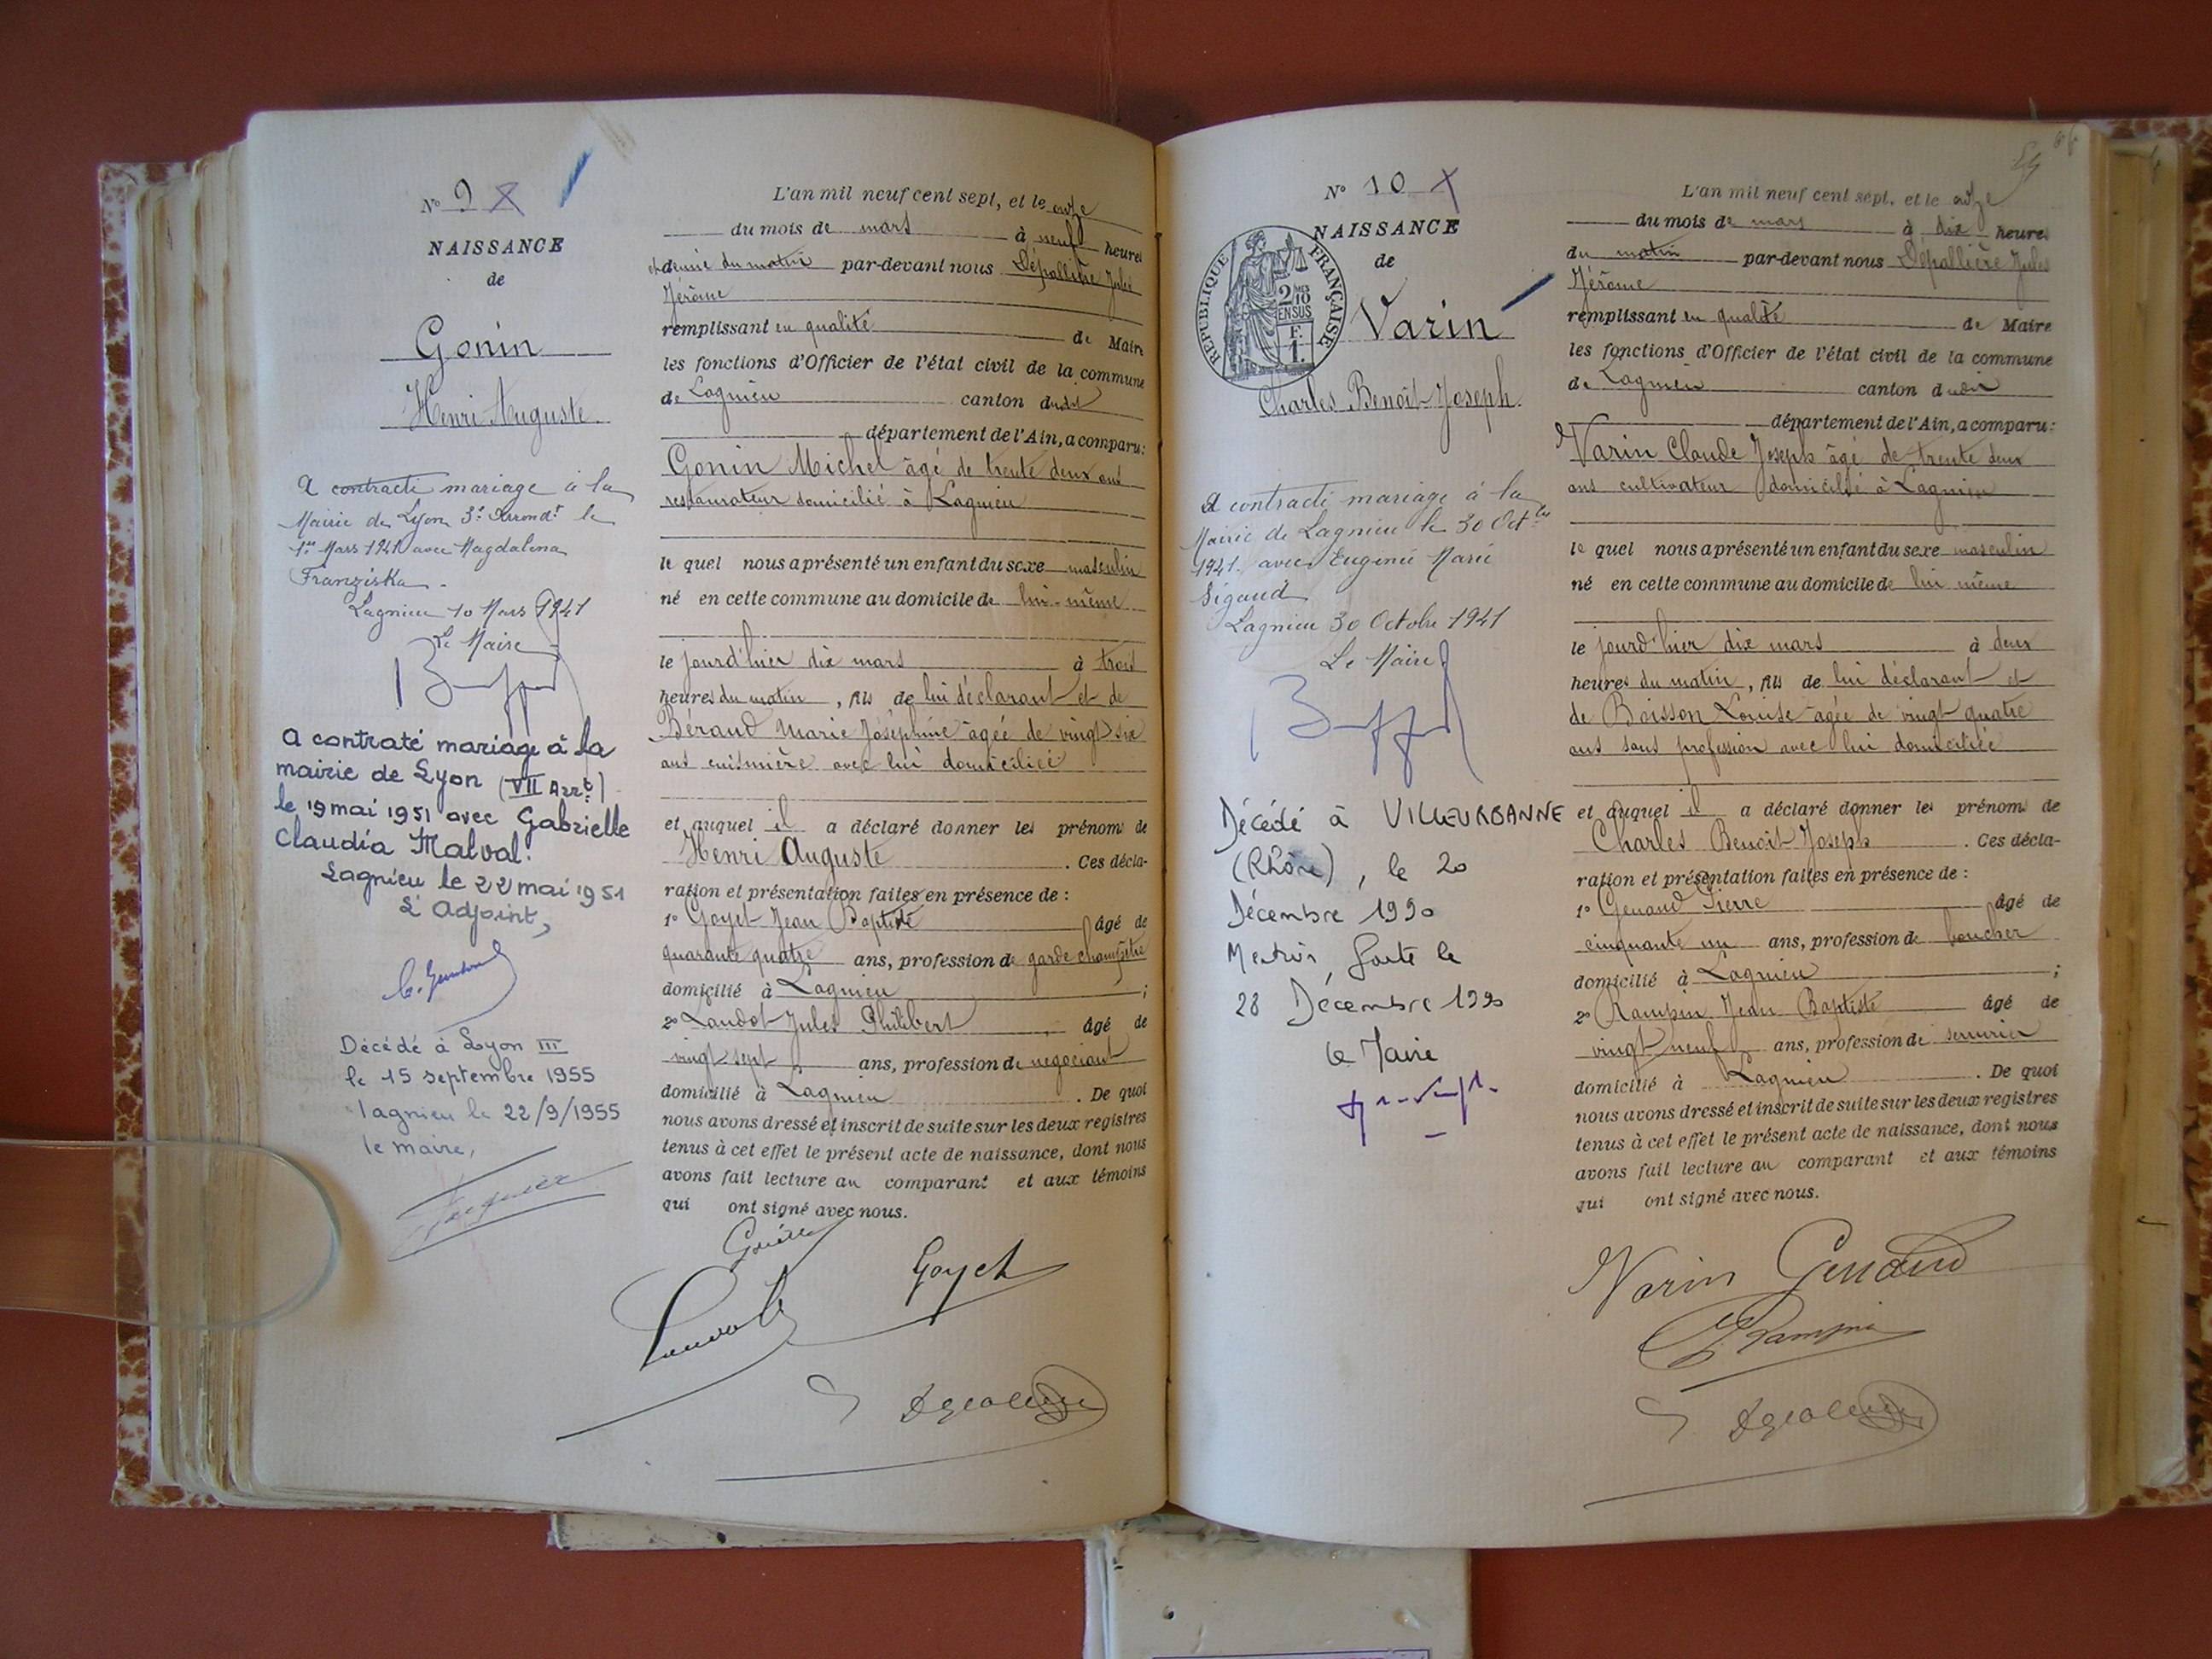 N° 9
NAISSANCE
de
Gonin
Henri Auguste
A contracté mariage à la
Mairie de Lyon 3e Arrondt le
1er Mars 1941 avec Magdalena
Franziska.
Lagnieu 10 Mars 1941
Le Maire
A contraté mariage à la
mairie de Lyon (VII Arrt)
le 19 mai 1951 avec Gabrielle
Claudia Malval.
Lagnieu le 22 mai 1951
L'Adjoint,
Décédé à Lyon III
le 15 septembre 1955
lagnieu le 22/9/1955
le maire,
L'an mil neuf cent sept, et le onze
du mois de mars à neuf heures
et demie du matin par-devant nous Dépallière Jules
Jérôme
remplissant en qualité de Maire
les fonctions d'Officier de l'état civil de la commune
de Lagnieu canton dudit
département de l'Ain, a comparu:
Gonin Michel âgé de trente deux ans
restaurateur domicilié à Lagnieu
le quel nous a présenté un enfant du sexe masculin
né en cette commune au domicile de lui-même
le jourd'hier dix mars à trois
heures du matin, fils de lui déclarant et de
Béraud Marie Joséphine âgée de vingt six
ans cuisinière avec lui domiciliée
et auquel il a déclaré donner les prénoms de
Henri Auguste. Ces décla-
ration et présentation faites en présence de :
1° Goyet Jean Baptiste âgé de
quarante quatre ans, profession de garde champêtre
domicilié à Lagnieu ;
2° Landot Jules Philibert âgé de
vingt sept ans, profession de négociant
domicilié à Lagnieu. De quoi
nous avons dressé et inscrit de suite sur les deux registres
tenus à cet effet le présent acte de naissance, dont nous
avons fait lecture au comparant et aux témoins
qui ont signé avec nous.
Goyet
N° 10
NAISSANCE
de
REPUBLIQUE FRANÇAISE
2/10
EN SUS
F.
1.
Varin
Charles Benoît Joseph
A contracté mariage à la
Mairie de Lagnieu le 30 Octbre
1941 avec Eugénie Marie
Sigaud
Lagnieu 30 Octobre 1941
Le Maire
Décédé à VILLEURBANNE
(Rhône), le 20
Décembre 1990
Mention faite le
28 Décembre 1990
Le Maire
L'an mil neuf cent sept, et le onze
du mois de mars à dix heures
du matin par-devant nous Dépallière Jules
Jérôme
remplissant en qualité de Maire
les fonctions d'Officier de l'état civil de la commune
de Lagnieu canton dudit
département de l'Ain, a comparu:
Varin Claude Joseph âgé de trente deux
ans cultivateur domicilié à Lagnieu
le quel nous a présenté un enfant du sexe masculin
né en cette commune au domicile de lui même
le jourd'hier dix mars à deux
heures du matin, fils de lui déclarant et
de Boisson Louise âgée de vingt quatre
ans sans profession avec lui domiciliée
et auquel il a déclaré donner les prénoms de
Charles Benoît Joseph. Ces décla-
ration et présentation faites en présence de :
1° Genaud Pierre âgé de
cinquante un ans, profession de boucher
domicilié à Lagnieu ;
2° Rampin Jean Baptiste âgé de
vingt neuf ans, profession de serrurier
domicilié à Lagnieu. De quoi
nous avons dressé et inscrit de suite sur les deux registres
tenus à cet effet le présent acte de naissance, dont nous
avons fait lecture au comparant et aux témoins
qui ont signé avec nous.
Varin Genaud
Rampin